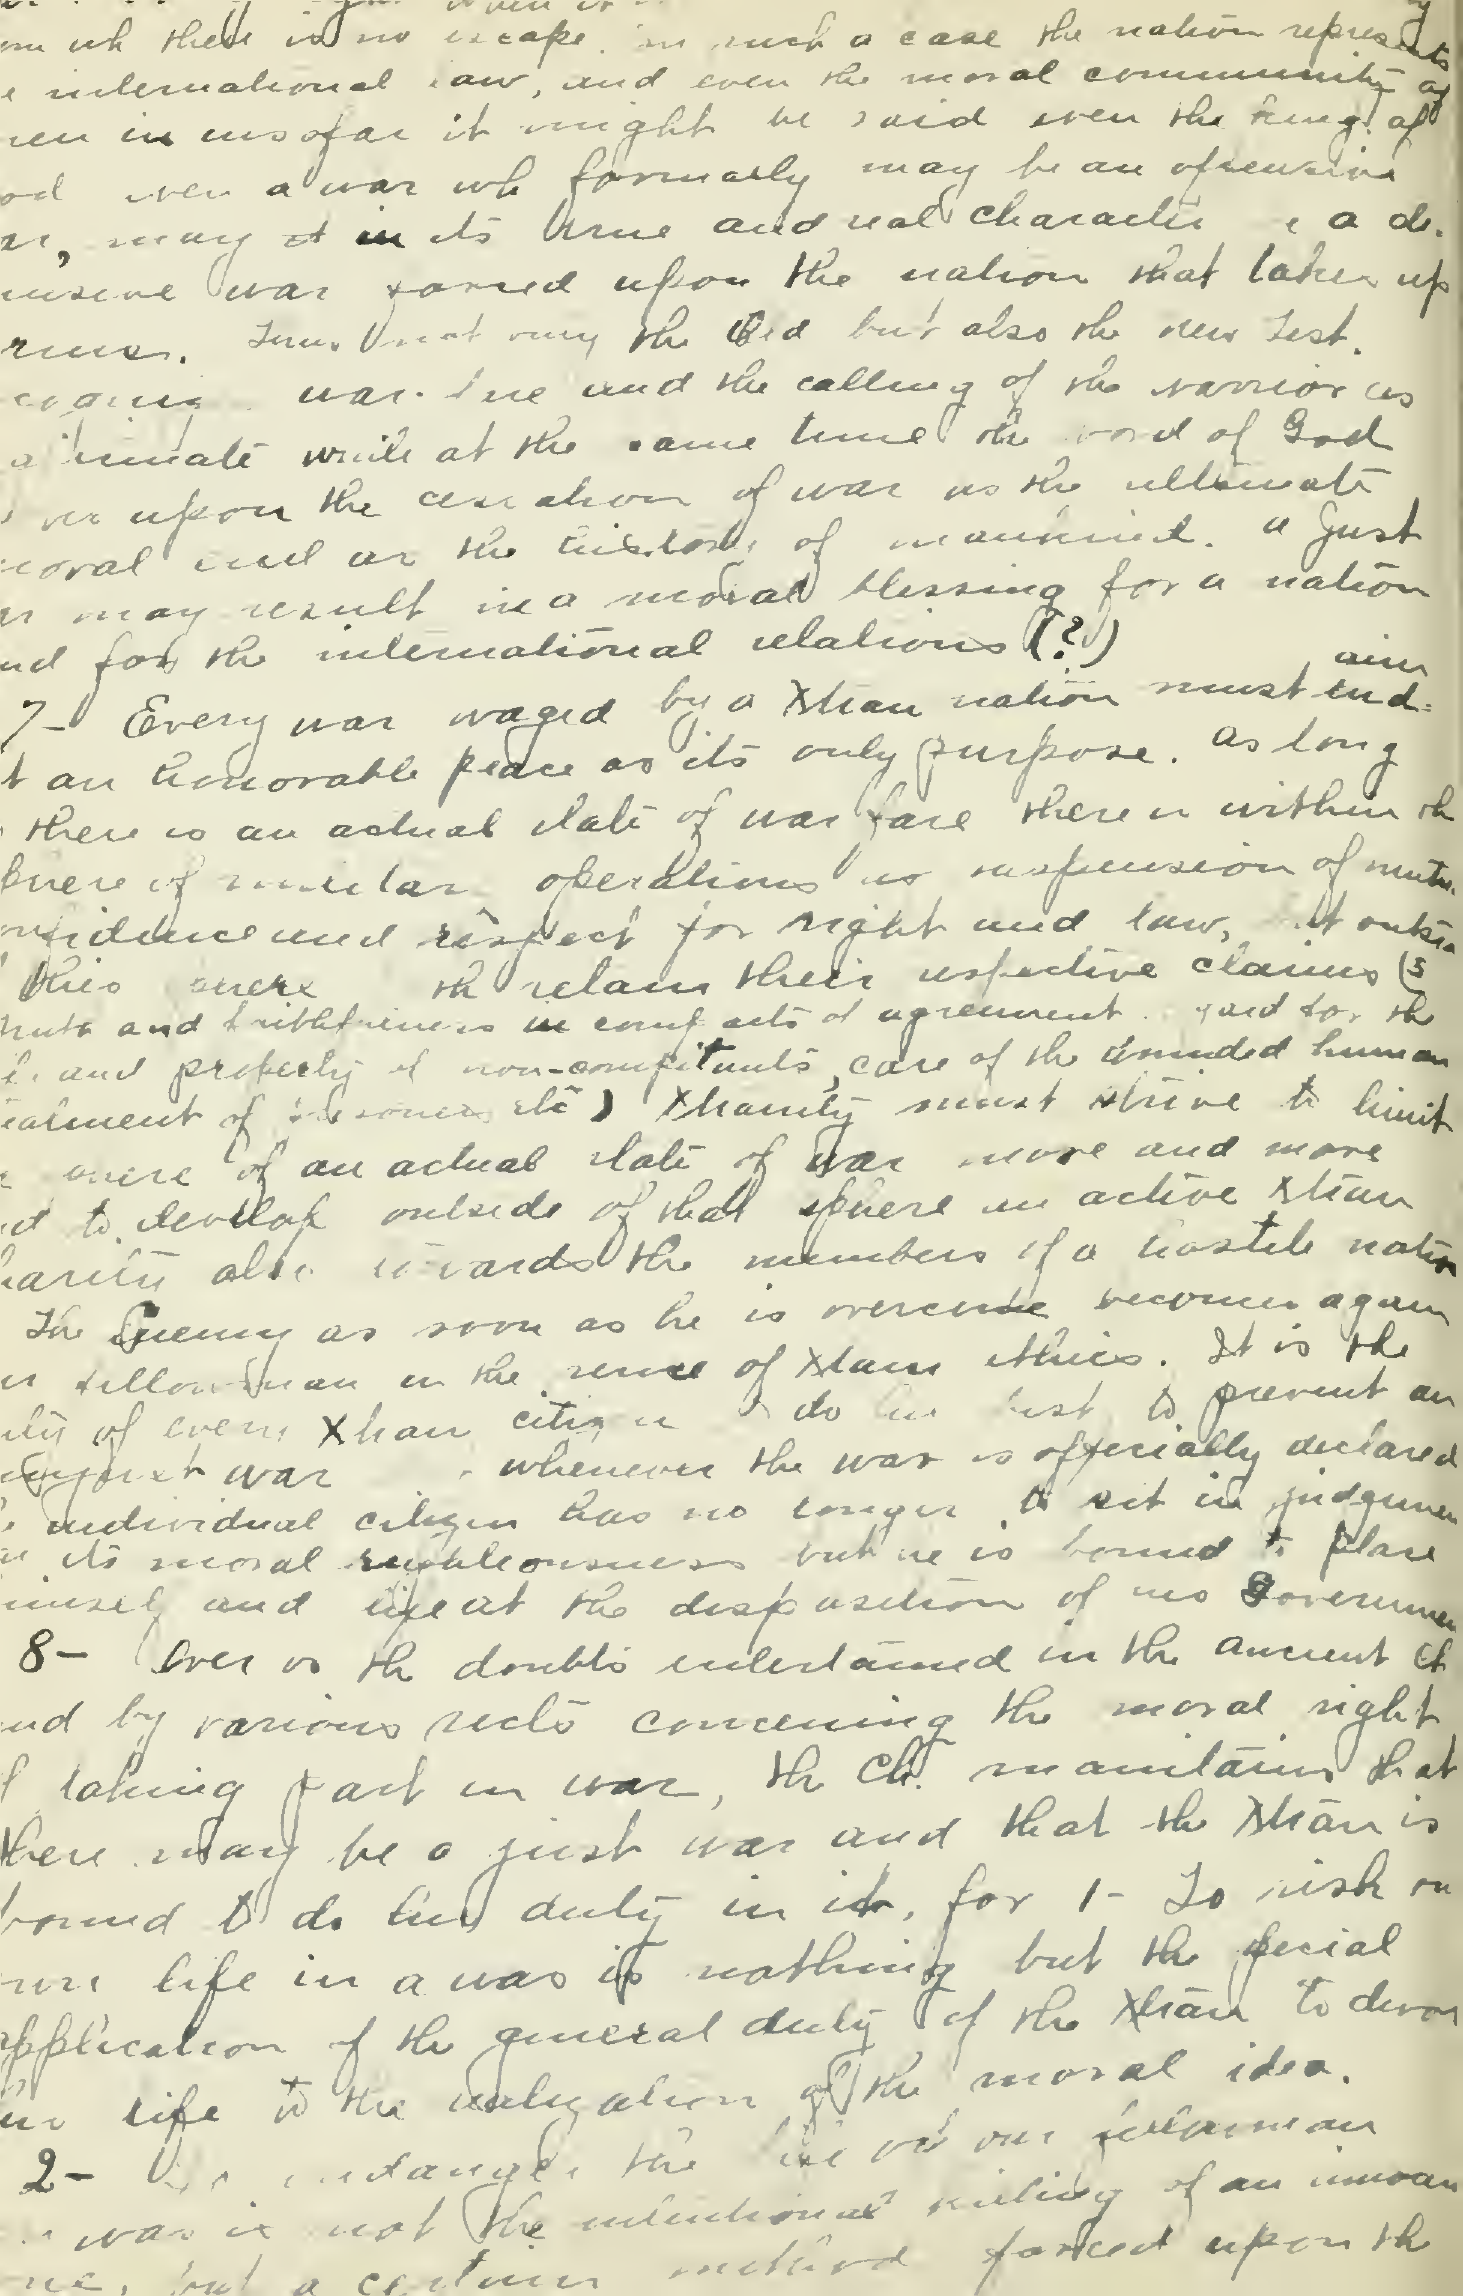 wh there is no escape. in such a case the nation represents
international law, and even the moral community of
men in insofar it might be said even the king. of
od even a war wh formerly may be an ofensive
ar, may it in its true and real character a de-
ensive war forced upon the nation that takes up
rms. Thus not only the Old but also the New Test.
war. and the calling of the warrior as
while at the same time the word of God
upon the cessation of war as the ultimate
moral end as the history of mankind. a just
ar may result in a moral blessing for a nation
nd for the international relations (?)
aim
7- Every war waged by a Xtian nation must end-
t an honorable peace as its only purpose. as long
there is an actual state of warfare there is within th
phere of military operations no suspension of mutu
onfidence and respect for right and law, but outsi
this sphere th retain their respective claims (s
truth and faithfulness in compacts of agreement. for the
and property of non-compitants, care of the wounded human
eatment of prisoners etc) Xtianity must strive to limit
sphere of an actual state of war more and more
nd to develop outside of that sphere an active Xtian
harity also towards the members of a hostile nation
The Enemy as soon as he is overcome becomes again
ur fellowman in the sense of Xtian ethics. It is the
uty of every Xtian citizen to do his best to prevent an
unjust war whenever the war is officially declared
individual citizen has no longer to sit in judgmen
its moral righteousness but he is bound to place
himself and life at the disposition of his Governmen
8- Over vs the doubts entertained in the ancient Ch
nd by various sects concerning the moral right
f taking part in war, the Ch. maintains that
there may be a just war and that the Xtian is
bound to do his duty in it, for 1- To risk on
own life in a war is nothing but the special
application of the general duty of the Xtian to devo
life to the realization of the moral idea.
2- To endanger the life of our fellowman
war is not the intentional killing of an
but a certain method forced upon the